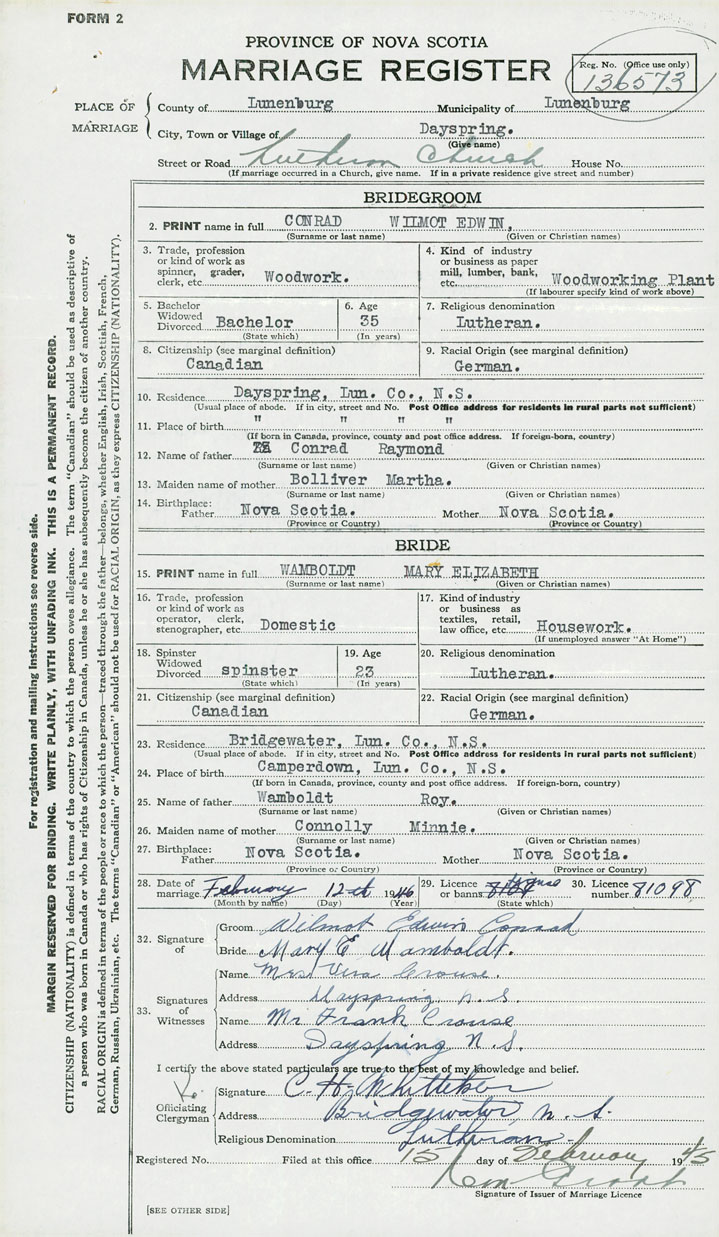 FORM 2
PROVINCE OF NOVA SCOTIA
MARRIAGE REGISTER
Reg. No. (Office use only)
136573
PLACE OF MARRIAGE
County of Lunenburg Municipality of Lunenburg
City, Town or Village of Dayspring.
(Give name)
Street or Road Lutheran Church House No.
(If marriage occurred in a Church, give name. If in a private residence give street and number)
BRIDEGROOM
2. PRINT name in full CONRAD WILMOT EDWIN,
(Surname or last name) (Given or Christian names)
3. Trade, profession or kind of work as spinner, grader, clerk, etc. Woodwork.
4. Kind of industry or business as paper mill, lumber, bank, etc. Woodworking Plant
(If labourer specify kind of work above)
5. Bachelor Widowed Divorced Bachelor
(State which)
6. Age 35
(In years)
7. Religious denomination
Lutheran.
8. Citizenship (see marginal definition)
Canadian
9. Racial Origin (see marginal definition)
German.
10. Residence Dayspring, Lun. Co., N.S.
(Usual place of abode. If in city, street and No. Post Office address for residents in rural parts not sufficient)
11. Place of birth " " " "
(If born in Canada, province, county and post office address. If foreign-born, country)
12. Name of father Conrad Raymond
(Surname or last name) (Given or Christian names)
13. Maiden name of mother Bolliver Martha.
(Surname or last name) (Given or Christian names)
14. Birthplace: Father Nova Scotia. Mother Nova Scotia.
(Province or Country) (Province or Country)
BRIDE
15. PRINT name in full WAMBOLDT MARY ELIZABETH
(Surname or last name) (Given or Christian names)
16. Trade, profession or kind of work as operator, clerk, stenographer, etc. Domestic
17. Kind of industry or business as textiles, retail, law office, etc. Housework.
(If unemployed answer "At Home")
18. Spinster Widowed Divorced spinster
(State which)
19. Age 23
(In years)
20. Religious denomination
Lutheran.
21. Citizenship (see marginal definition)
Canadian
22. Racial Origin (see marginal definition)
German.
23. Residence Bridgewater, Lun. Co., N.S.
(Usual place of abode. If in city, street and No. Post Office address for residents in rural parts not sufficient)
24. Place of birth Camperdown, Lun. Co., N.S.
(If born in Canada, province, county and post office address. If foreign-born, country)
25. Name of father Wamboldt Roy.
(Surname or last name) (Given or Christian names)
26. Maiden name of mother Connolly Minnie.
(Surname or last name) (Given or Christian names)
27. Birthplace: Father Nova Scotia. Mother Nova Scotia.
(Province or Country) (Province or Country)
28. Date of marriage February 12th 1946
(Month by name) (Day) (Year)
29. Licence or banns
(State which)
30. Licence number 81098
32. Signature of
Groom Wilmot Edwin Conrad
Bride Mary E Wamboldt.
33. Signatures of Witnesses
Name Mrs Vera Crouse.
Address Dayspring, N.S.
Name Mr Frank Crouse
Address Dayspring N.S.
I certify the above stated particulars are true to the best of my knowledge and belief.
Officiating Clergyman
Signature C. H. Whitteker
Address Bridgewater, N.S.
Religious Denomination Lutheran.
Registered No. Filed at this office 15 day of February 19
Signature of Issuer of Marriage Licence
[SEE OTHER SIDE]
For registration and mailing instructions see reverse side.
MARGIN RESERVED FOR BINDING. WRITE PLAINLY, WITH UNFADING INK. THIS IS A PERMANENT RECORD.
CITIZENSHIP (NATIONALITY) is defined in terms of the country to which the person owes allegiance. The term "Canadian" should be used as descriptive of
a person who was born in Canada or who has rights of Citizenship in Canada, unless he or she has subsequently become the citizen of another country.
RACIAL ORIGIN is defined in terms of the people or race to which the person—traced through the father—belongs, whether English, Irish, Scottish, French,
German, Russian, Ukrainian, etc. The terms "Canadian" or "American" should not be used for RACIAL ORIGIN, as they express CITIZENSHIP (NATIONALITY).